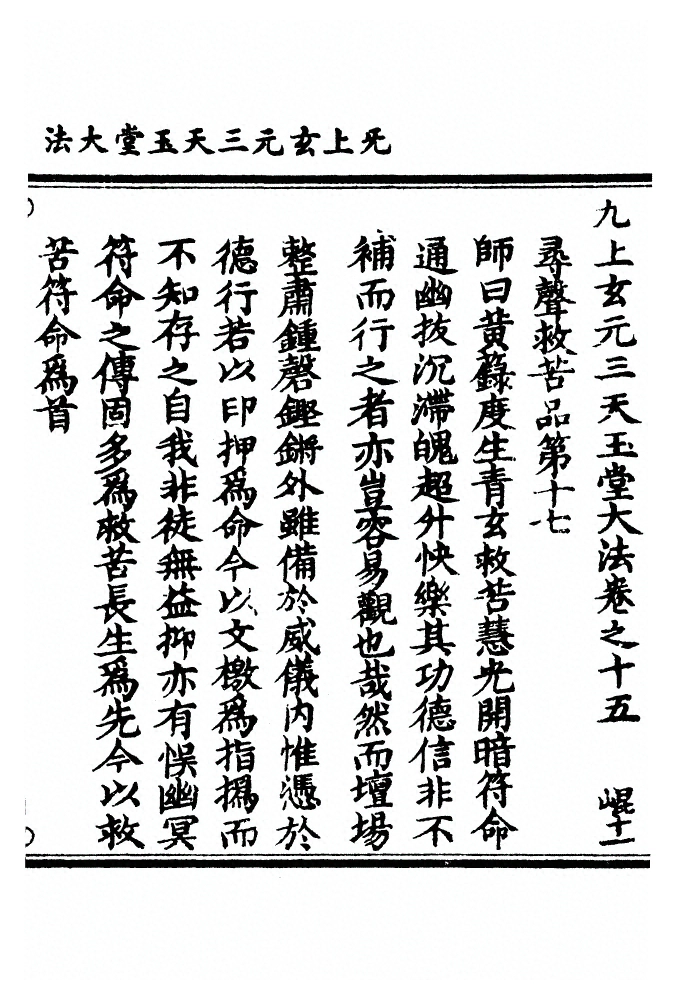 法大堂玉天三元玄上旡
九上玄元三天玉堂大法卷之十五 崐十一
尋聲救苦品第十七
師曰黄籙度生青玄救苦慧光開暗符命
通幽拔沉滯魄超升快樂其功德信非不
補而行之者亦豈容易觀也哉然而壇場
整肅鍾磬鏗鏘外雖備於威儀内惟憑於
德行若以印押爲命令以文檄爲指撝而
不知存之自我非徒無益抑亦有悮幽冥
符命之傳固多爲救苦長生爲先今以救
苦符命爲首